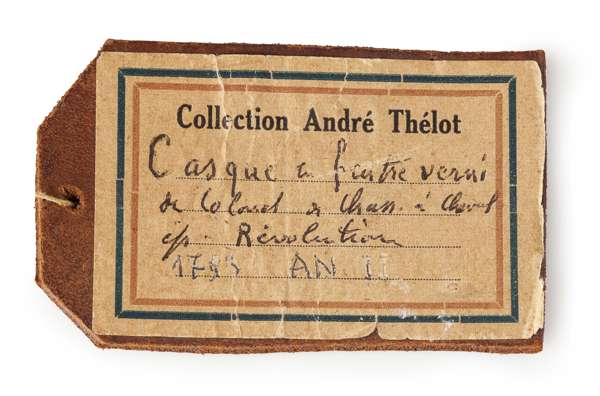 Collection André Thélot
Casque en feutre verni
de Colonel de Chass. à Cheval
ép. Révolution
1793 AN II